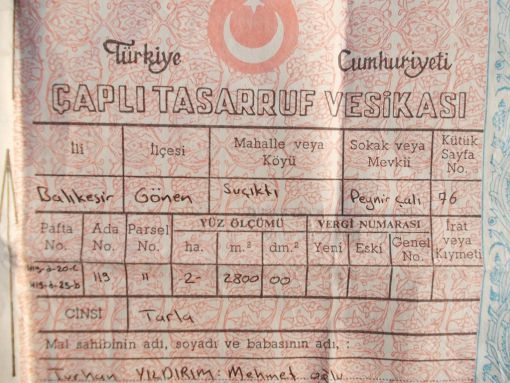 Türkiye Cumhuriyeti
ÇAPLI TASARRUF VESİKASI
İli İlçesi Mahalle veya Köyü Sokak veya Mevkii Kütük Sayfa No.
Balıkesir Gönen Suçıktı Peynir Çalı 76
Pafta No. Ada No. Parsel No. YÜZ ÖLÇÜMÜ ha. m.² dm.² VERGİ NUMARASI Yeni Eski Genel No. İrat veya Kıymeti
119 11 2- 2800 00
CİNSİ Tarla
Mal sahibinin adı, soyadı ve babasının adı, :
Turhan YILDIRIM : Mehmet oğlu